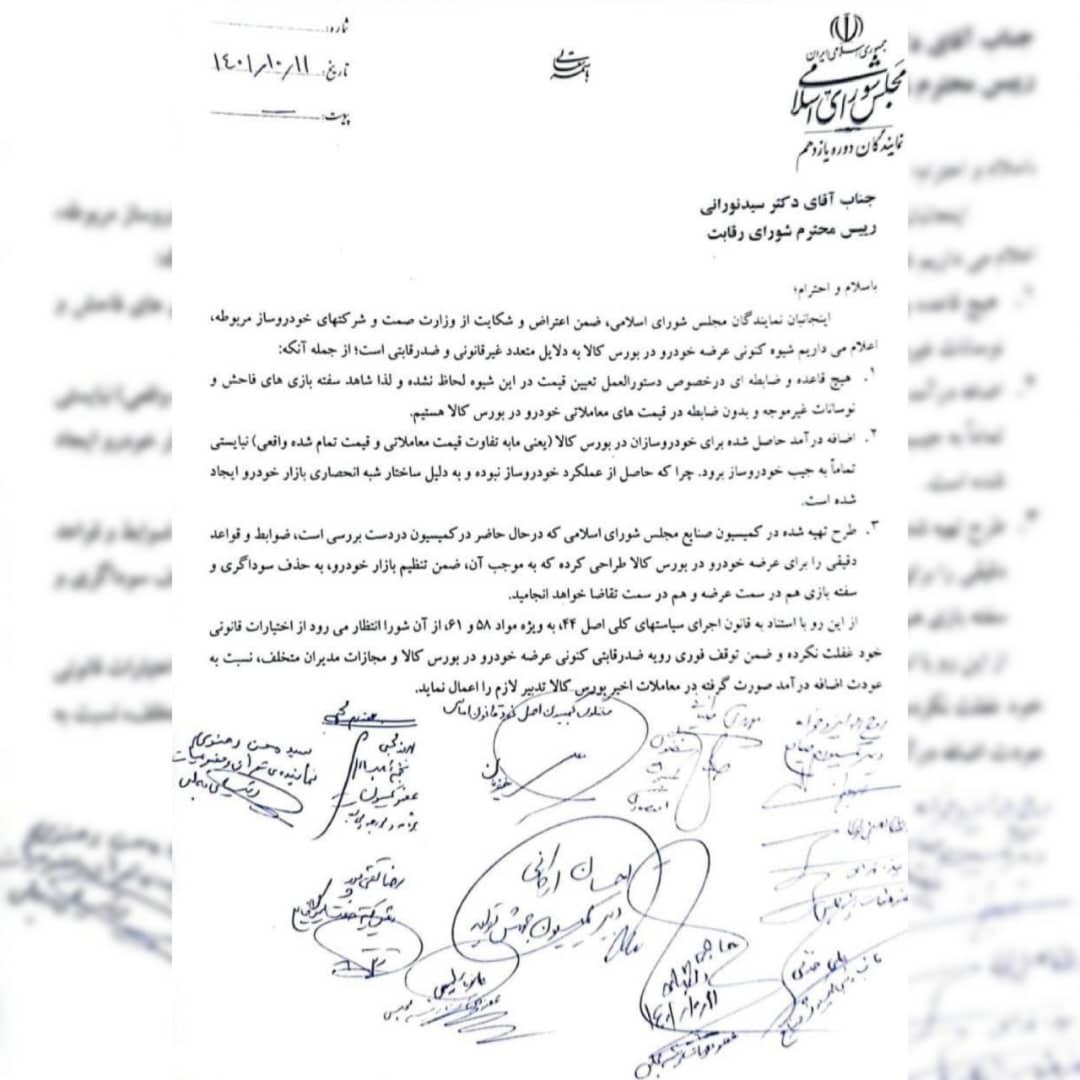 جمهوری اسلامی ایران
مجلس شورای اسلامی
نمایندگان دوره یازدهم
بسمه تعالی
شماره:
تاریخ: ۱۴۰۱/۱۰/۱۱
پیوست:
جناب آقای دکتر سیدنورانی
رییس محترم شورای رقابت
باسلام و احترام؛
اینجانبان نمایندگان مجلس شورای اسلامی، ضمن اعتراض و شکایت از وزارت صمت و شرکتهای خودروساز مربوطه،
اعلام می داریم شیوه کنونی عرضه خودرو در بورس کالا به دلایل متعدد غیرقانونی و ضدرقابتی است؛ از جمله آنکه:
۱. هیچ قاعده و ضابطه ای درخصوص دستورالعمل تعیین قیمت در این شیوه لحاظ نشده و لذا شاهد سفته بازی های فاحش و
نوسانات غیرموجه و بدون ضابطه در قیمت های معاملاتی خودرو در بورس کالا هستیم.
۲. اضافه درآمد حاصل شده برای خودروسازان در بورس کالا (یعنی مابه تفاوت قیمت معاملاتی و قیمت تمام شده واقعی) نبایستی
تماماً به جیب خودروساز برود. چرا که حاصل از عملکرد خودروساز نبوده و به دلیل ساختار شبه انحصاری بازار خودرو ایجاد
شده است.
۳. طرح تهیه شده در کمیسیون صنایع مجلس شورای اسلامی که درحال حاضر در کمیسیون دردست بررسی است، ضوابط و قواعد
دقیقی را برای عرضه خودرو در بورس کالا طراحی کرده که به موجب آن، ضمن تنظیم بازار خودرو، به حذف سوداگری و
سفته بازی هم در سمت عرضه و هم در سمت تقاضا خواهد انجامید.
از این رو با استناد به قانون اجرای سیاستهای کلی اصل ۴۴، به ویژه مواد ۵۸ و ۶۱، از آن شورا انتظار می رود از اختیارات قانونی
خود غفلت نکرده و ضمن توقف فوری رویه ضدرقابتی کنونی عرضه خودرو در بورس کالا و مجازات مدیران متخلف، نسبت به
عودت اضافه درآمد صورت گرفته در معاملات اخیر بورس کالا تدبیر لازم را اعمال نماید.
سید محسن دهنوی
نماینده
عضو کمیسیون
رضا تقی پور
احسان ارکانی
۱۴۰۱/۱۰/۱۱